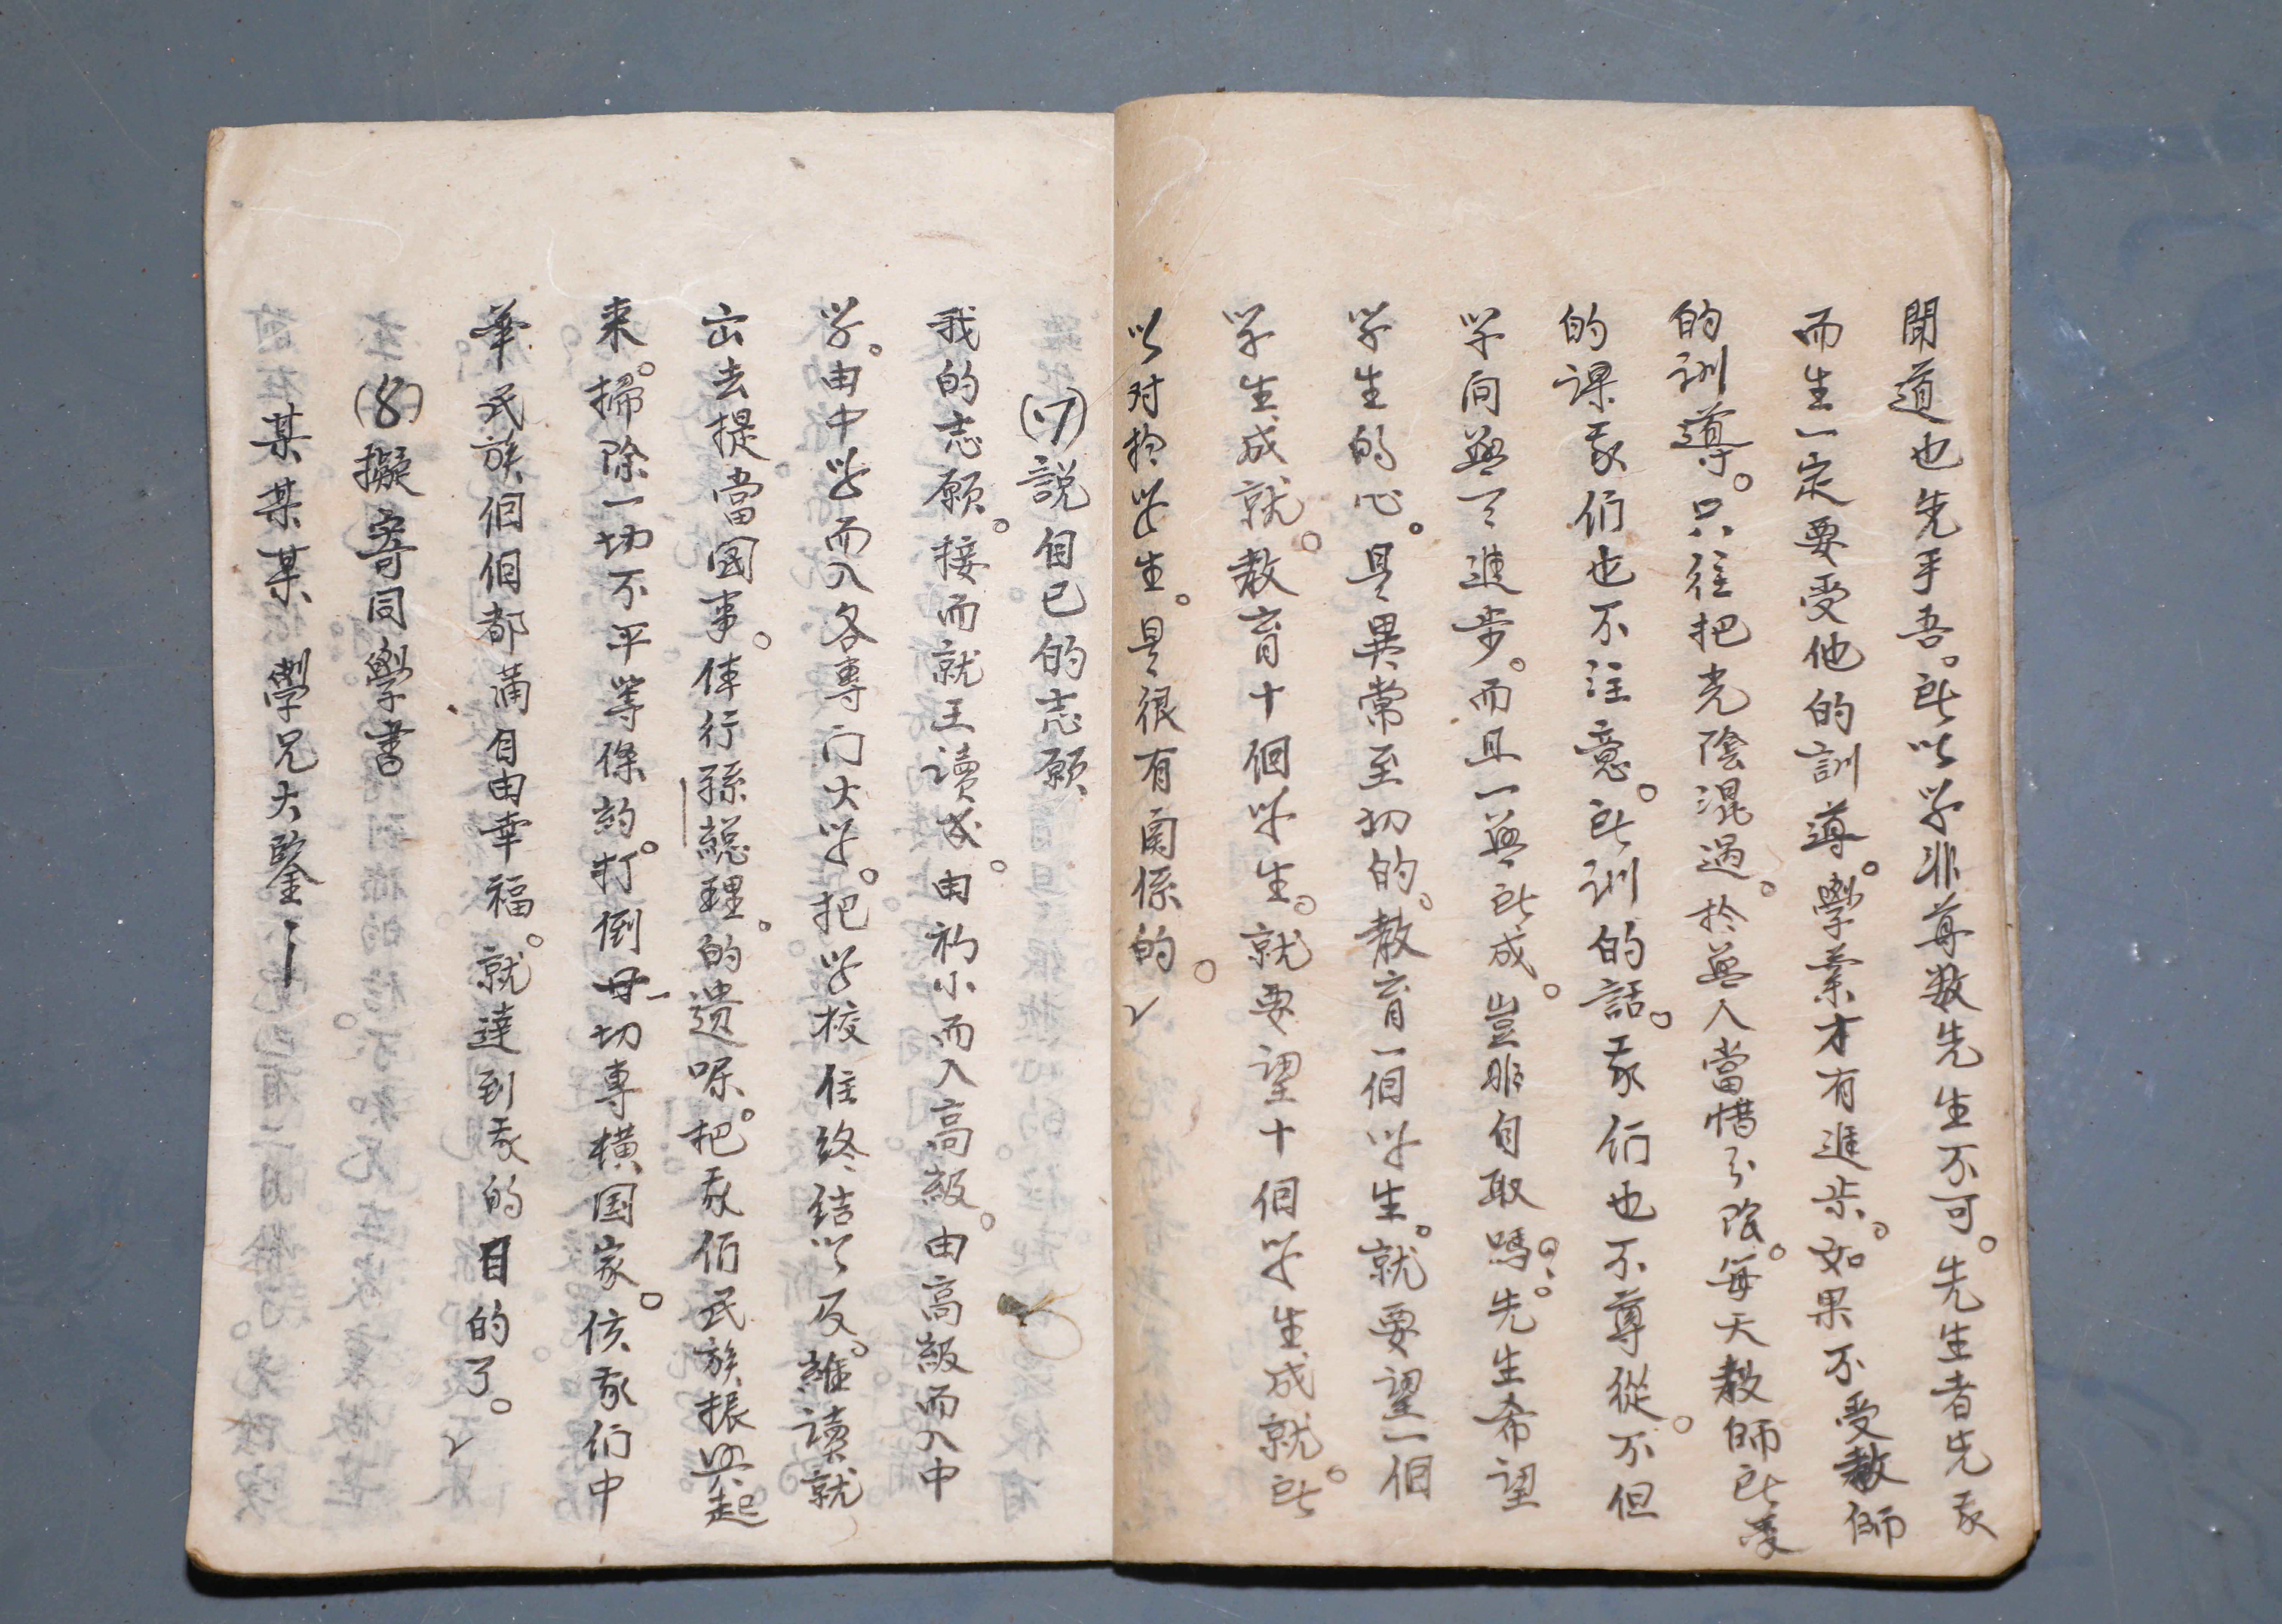 聞道也先乎吾。所以学非尊敬先生不可。先生者先我
而生一定要受他的訓導。學業才有進步。如果不受教師
的訓導。只往把光陰混過。於無人當惜分陰。每天教師所受
的课我们也不注意。所训的話。我们也不尊從。不但
学问無了進步。而且一無所成。豈非自取嗎？。先生希望
学生的心。是異常至切的。教育一個学生。就要望一個
学生成就。教育十個学生。就要望十個学生成就。所
以对於学生。是很有関係的。
(7)説自己的志願
我的志願。接而就王讀成。由初小而入高級。由高級而入中
学。由中学而入各專门大学。把学校住终结以及。雖讀就
出去提當國事。俸行孫総理。的遗嘱。把我們民族振興起
来。掃除一切不平等條約。打倒一切專横国家。使我们中
華民族個個都满自由幸福。就達到我的目的了。
(8)擬寄同學書
某某某學兄大鑒—